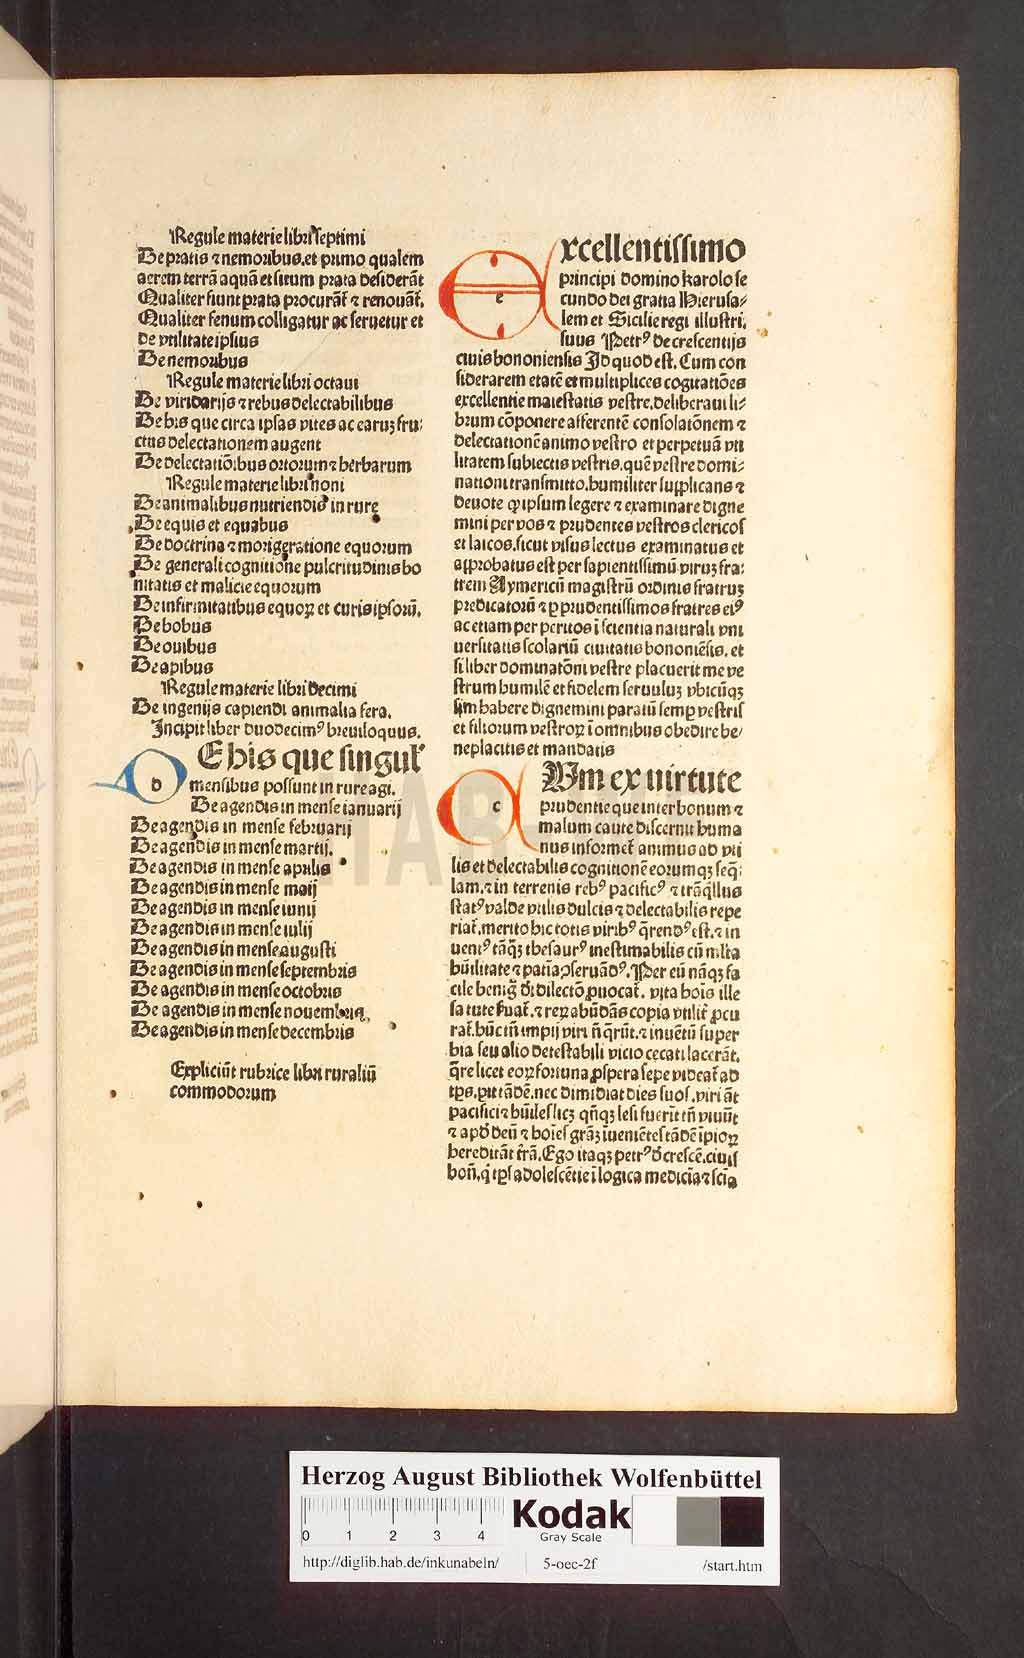 Regule materie libri septimi
De pratis ⁊ nemoribus. et primo qualem
aerem terrā aquā et situm prata desiderāt
Qualiter fiunt prata procurāt᷑ ⁊ renouāt᷑.
Qualiter fenum colligatur ac seruetur et
de vtilitate ipsius
De nemoribus
Regule materie libri octaui
De viridarijs ⁊ rebus delectabilibus
De his que circa ipsas vites ac earuꝫ fru⸗
ctus delectationem augent
De delectatiōibus ortorum ⁊ herbarum
Regule materie libri noni
De animalibus nutriendis in rure
De equis et equabus
De doctrina ⁊ morigeratione equorum
De generali cognitione pulcritudinis bo
nitatis et malicie equorum
De infirmitatibus equoꝝ et curis ipsorū.
De bobus
De ouibus
De apibus
Regule materie libri decimi
De ingenijs capiendi animalia fera.
Incipit liber duodecimꝰ breuiloquus.
d
E his que singul᷑
mensibus possunt in rure agi.
De agendis in mense ianuarij
De agendis in mense februarij
De agendis in mense martij.
De agendis in mense aprilis
De agendis in mense maij
De agendis in mense iunij
De agendis in mense iulij
De agendis in mense augusti
De agendis in mense septembris
De agendis in mense octobris
De agendis in mense nouembris.
De agendis in mense decembris
Expliciūt rubrice libri ruraliū
commodorum
e
xcellentissimo
principi domino karolo se
cundo dei gratia Hierusa⸗
lem et Sicilie regi illustri.
suus Petrꝰ de crescentijs
ciuis bononiensis Id quod est. Cum con
siderarem etatē et multiplices cogitatiōes
excellentie maiestatis vestre. deliberaui li⸗
brum cōponere afferentē consolatōnem ⁊
delectationē animo vestro et perpetuā vti
litatem subiectis vestris. quē vestre domi⸗
nationi transmitto. humiliter supplicans ⁊
deuote ꝙ ipsum legere ⁊ examinare digne
mini per vos ⁊ prudentes vestros clericos
et laicos. sicut visus lectus examinatus et
approbatus est per sapientissimū viruꝫ fra⸗
trem Aymericū magistrū ordinis fratruꝫ
predicatorū ⁊ ꝑ prudentissimos fratres eiꝰ
ac etiam per peritos ī scientia naturali vni
uersitatis scolariū ciuitatis bononiēsis. et
si liber dominatōni vestre placuerit me ve
strum humilē et fidelem seruuluꝫ vbicūqꝫ
sim habere dignemini paratū semꝑ vestris
et filiorum vestroꝝ ī omnibus obedire be⸗
neplacitis et mandatis
c
Vm ex virtute
prudentie que inter bonum ⁊
malum caute discernit huma
nus informet᷑ animus ad vti
lis et delectabilis cognitionē eorumqꝫ seq̄⸗
lam. ⁊ in terrenis rebꝰ pacificꝰ ⁊ trāq̇llus
statꝰ valde vtilis dulcis ⁊ delectabilis repe
riat᷑. merito hic totis viribꝰ q̄rendꝰ est. ⁊ in
uentꝰ tāqꝫ thesaurꝰ inestimabilis cū ml̄ta
hūilitate ⁊ patīa ꝯseruādꝰ. Per eū nāqꝫ fa
cile benig̈ dī dilectō ꝓuocat᷑. vita hoīs ille
sa tute ẜuat᷑. ⁊ reꝝ abūdās copia vtilit᷑ ꝓcu
rat᷑. hūc tn̄ impij viri n̄ q̄rūt. ⁊ inuētū super
bia seu alio detestabili vicio cecati lacerāt.
q̄re licet eoꝝ fortuna ꝓspera sepe videat᷑ ad
tp̄s. ꝑit tādē. nec dimidiāt dies suos. viri āt
pacifici ⁊ hūiles licꝫ qn̄qꝫ lesi fuerīt tn̄ viuūt
⁊ apd̓ deū ⁊ hoīes grāꝫ iueniētes tādē īpioꝝ
hereditāt t̄rā. Ego itaqꝫ petrꝰ d̓ crescē. ciuis
bon̄. q̇ tp̄s adolescētie ī logica medicīa ⁊ scīa
HAB
Herzog August Bibliothek Wolfenbüttel
0 1 2 3 4
Kodak
Gray Scale
http://diglib.hab.de/inkunabeln/ 5-oec-2f /start.htm